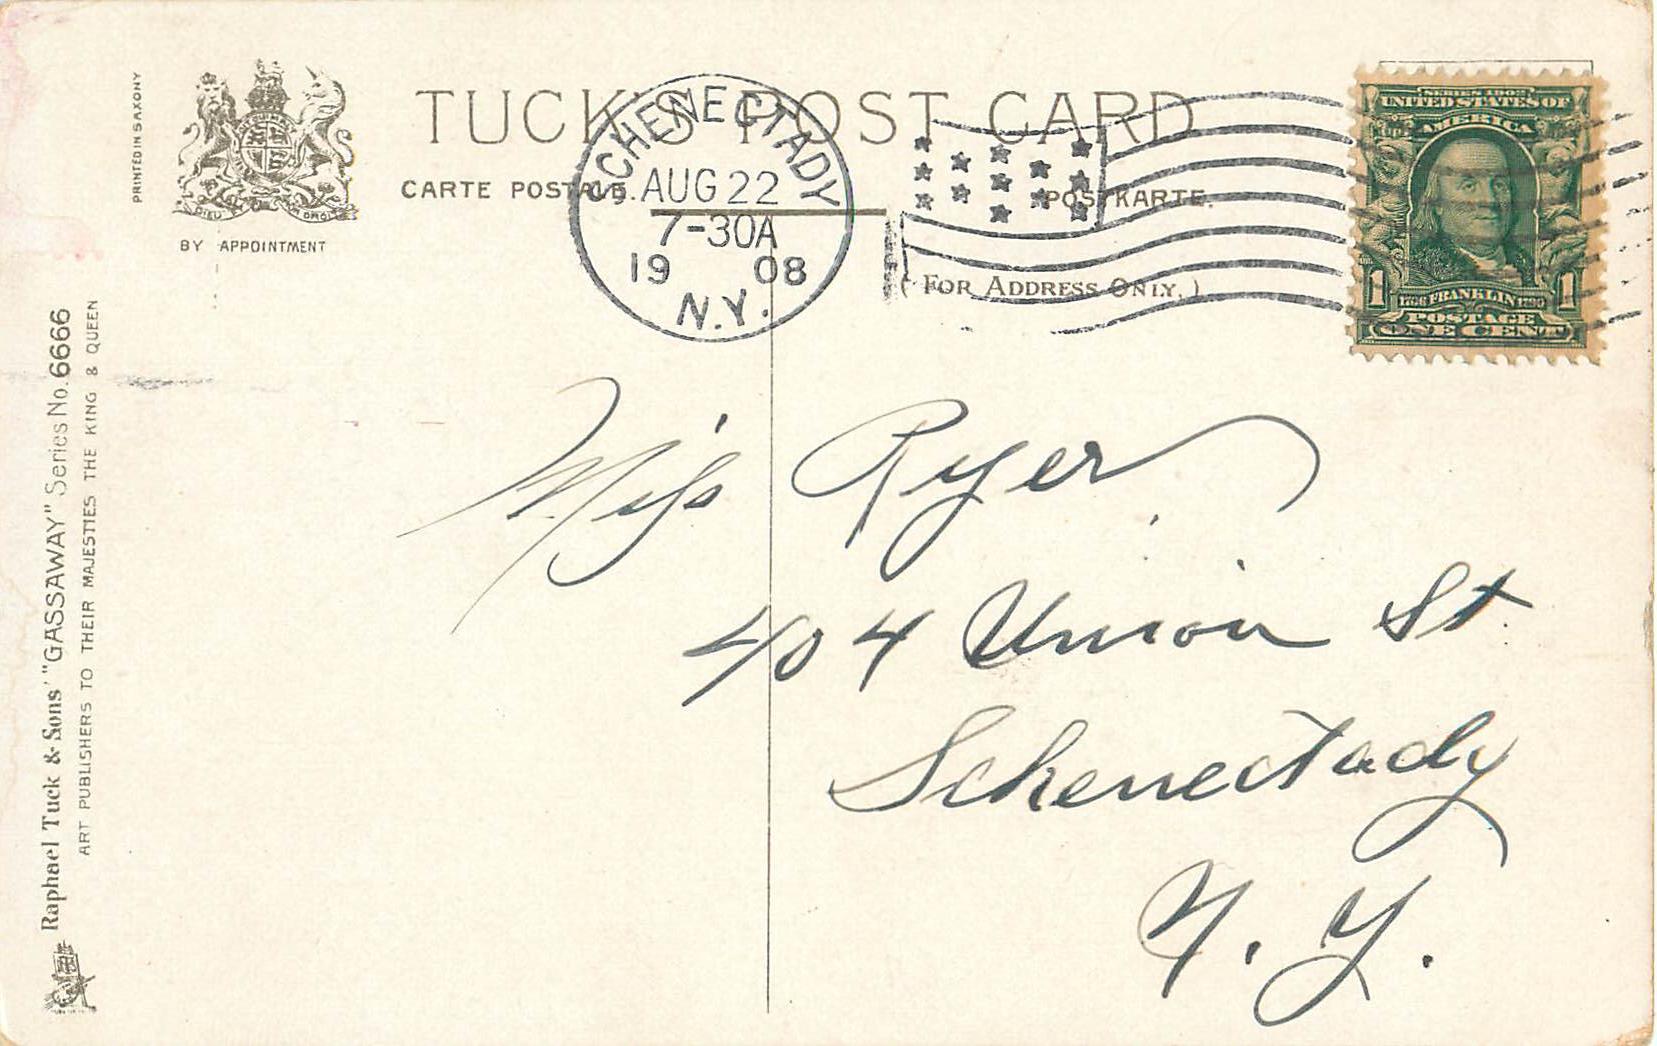 PRINTED IN SAXONY
DIEU ET MON DROIT
BY APPOINTMENT
TUCK'S POST CARD
CARTE POSTALE.
POSTKARTE.
(FOR ADDRESS ONLY.)
SCHENECTADY
AUG 22
7-30A
1908
N.Y.
SERIES 1902
UNITED STATES OF
AMERICA
1706 FRANKLIN 1790
1 1
POSTAGE
ONE CENT
Raphael Tuck & Sons' "GASSAWAY" Series No. 6666
ART PUBLISHERS TO THEIR MAJESTIES THE KING & QUEEN
Miss Ryer
404 Union St.
Schenectady
N. Y.